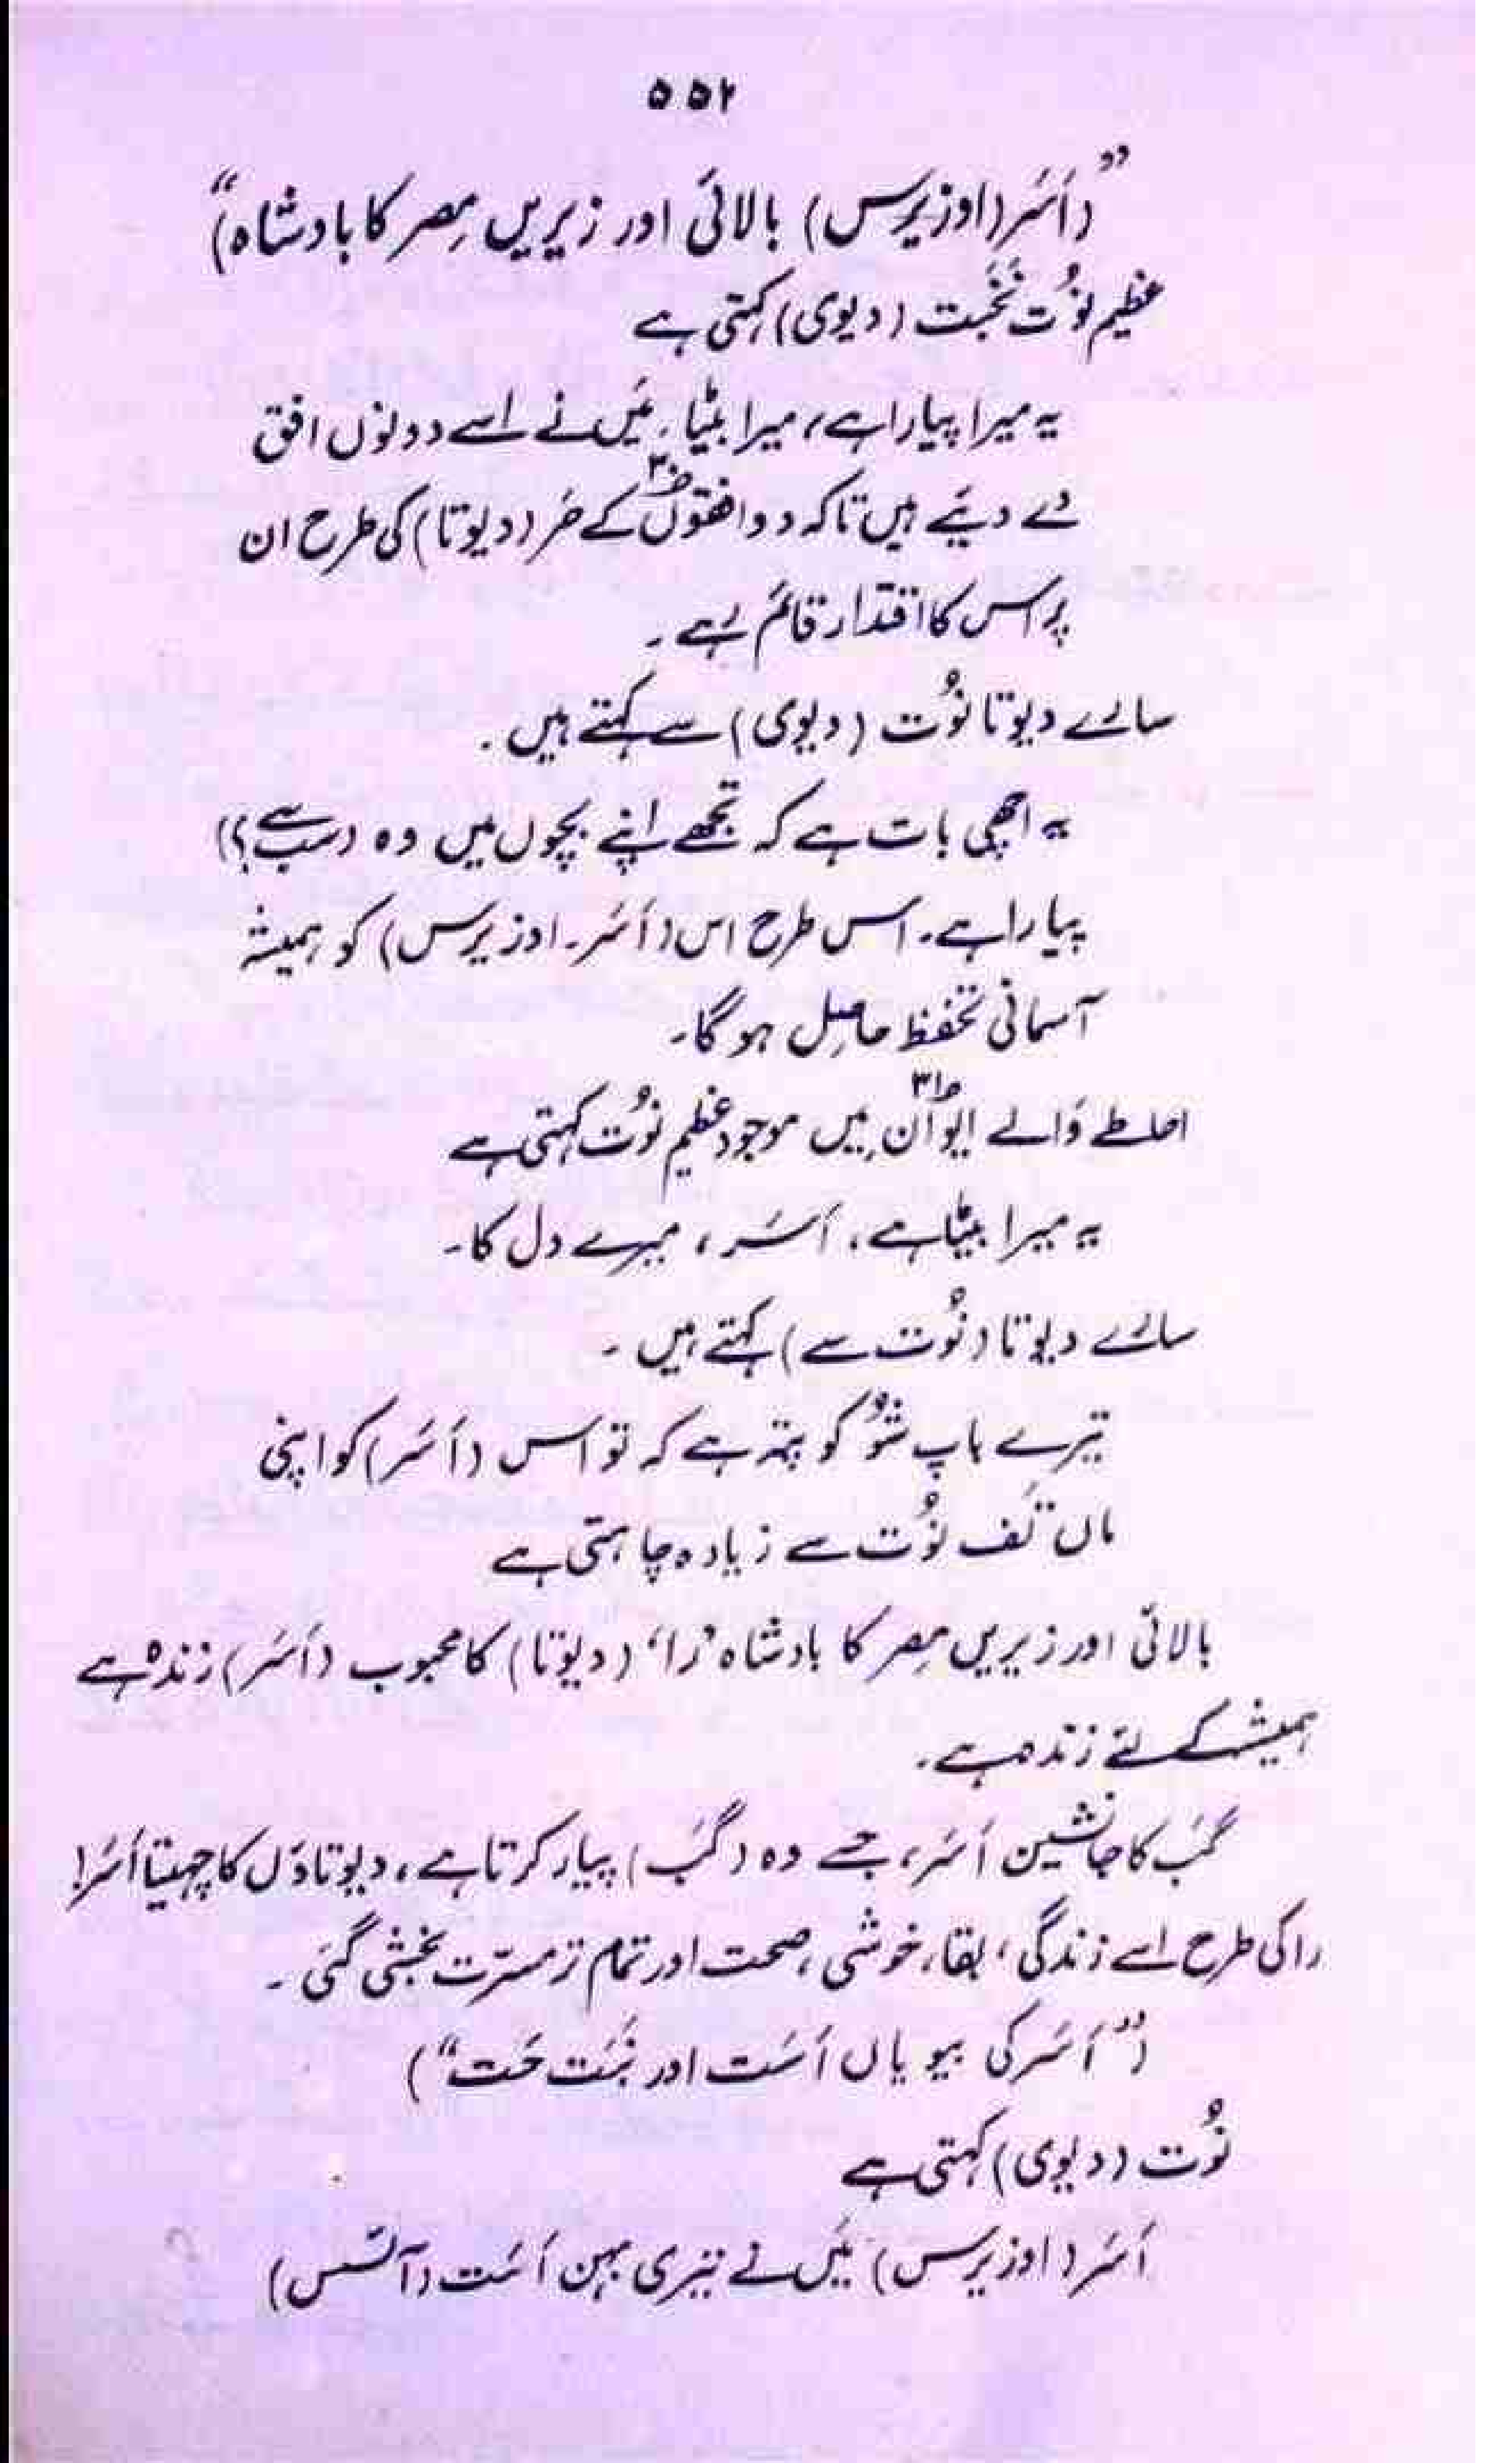 ۵۵۲
"(اَسَر (اوزیرس) بالائی اور زیریں مِصر کا بادشاہ")
عظیم نوُت نَخَبت (دیوی) کہتی ہے
یہ میرا پیارا ہے، میرا بیٹا۔ مَیں نے اسے دونوں افق
دے دیئے ہیں تاکہ دو افقوں۳۰ کے حَر (دیوتا) کی طرح ان
پر اس کا اقتدار قائم رہے۔
سارے دیوتا نوُت (دیوی) سے کہتے ہیں۔
یہ اچھی بات ہے کہ تجھے اپنے بچوں میں وہ (سب سے؟)
پیارا ہے۔ اس طرح اس (اَسَر۔ اوزیرس) کو ہمیشہ
آسمانی تحفظ حاصِل ہو گا۔
احاطے وَالے ایوان۳۱ میں موجود عظیم نوُت کہتی ہے
یہ میرا بیٹا ہے، اَسَر، میرے دل کا۔
سارے دیوتا (نوُت سے) کہتے ہیں۔
تیرے باپ شوُ کو پتہ ہے کہ تو اس (اَسَر) کو اپنی
ماں تَف نوُت سے زیادہ چاہتی ہے
بالائی اور زیریں مِصر کا بادشاہ 'رَا' (دیوتا) کا محبوب (اَسَر) زندہ ہے
ہمیشہ کے لئے زندہ ہے۔
گَب کا جانشین اَسَر، جسے وہ (گَب) پیار کرتا ہے، دیوتاؤں کا چہیتا اَسَر!
را کی طرح اسے زندگی، بقا، خوشی، صحت اور تمام تر مسرّت بخشی گئی۔
("اَسَر کی بیویاں اَسَت اور نَبَت حَت")
نوُت (دیوی) کہتی ہے
اَسَر (اوزیرس) مَیں نے تیری بہن اَسَت (آئسس)